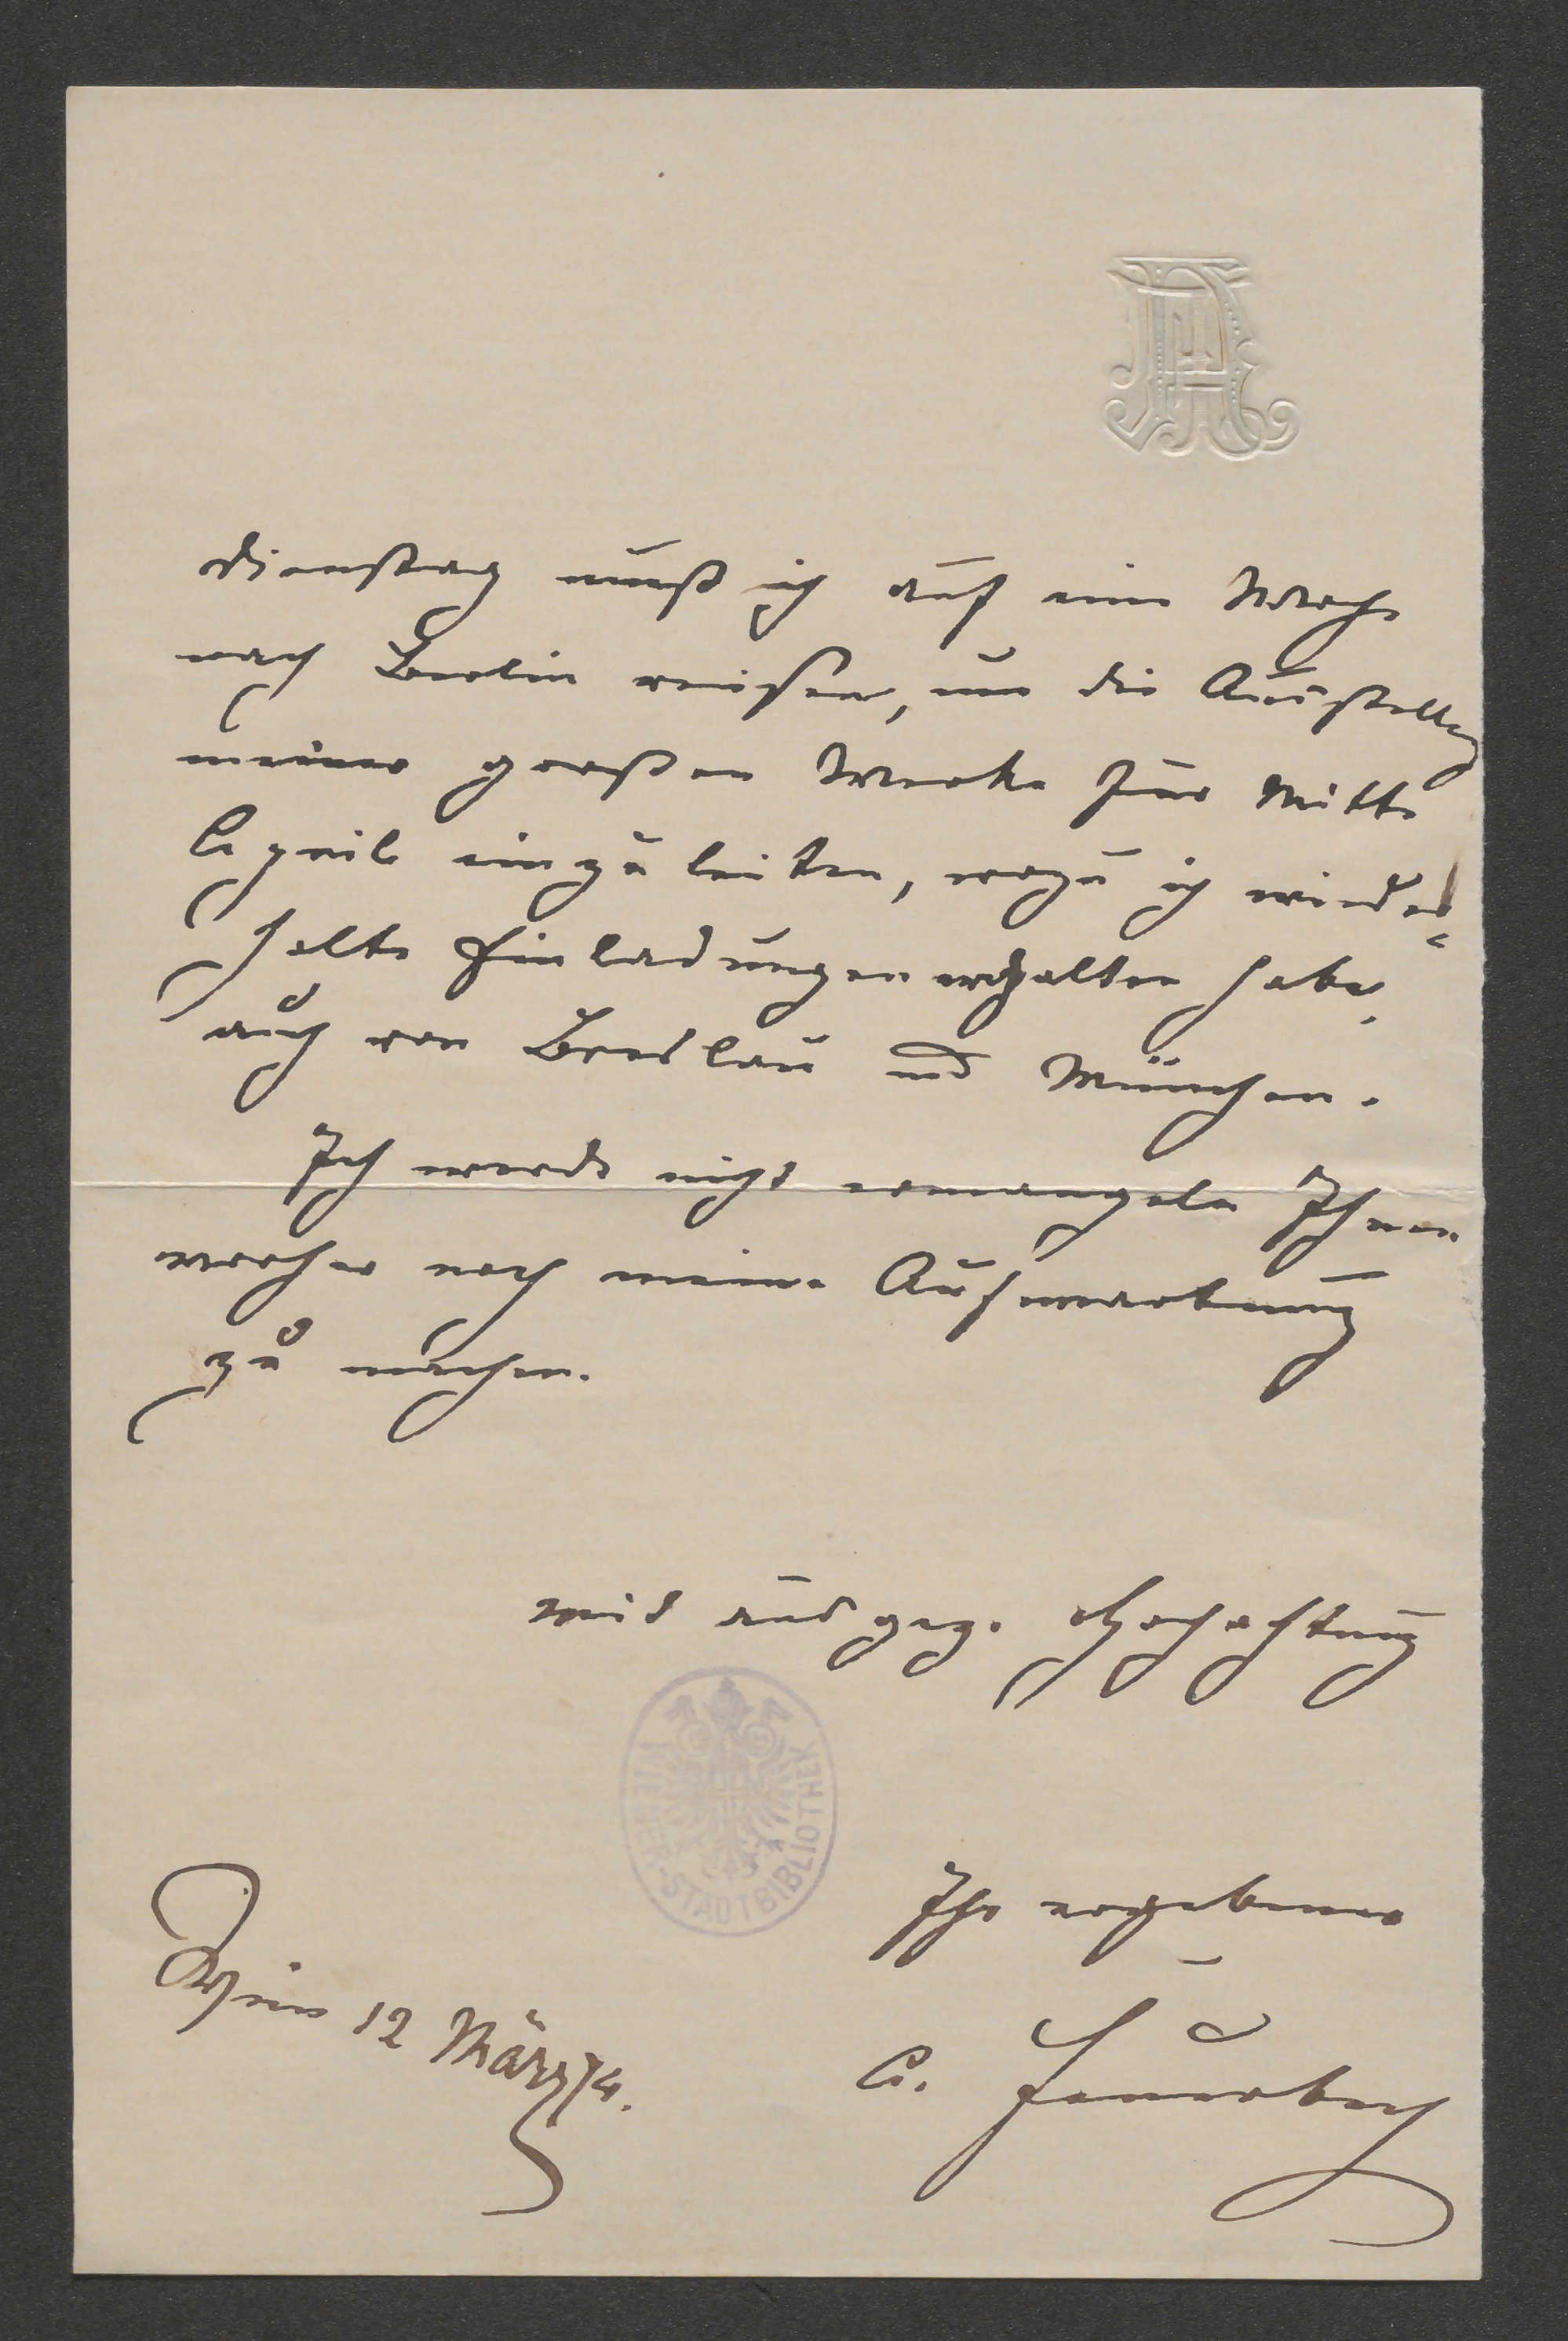 AF
Dienstag muß ich auf eine Woche
nach Berlin reisen, um die Ausstellung
meiner großen Werke für Mitte
April einzuleiten, wozu ich wieder=
holte Einladungen erhalten habe,
auch von Breslau und München.
Ich werde nicht ermangeln Ihnen
vorher noch meine Aufwartung
zu machen.
mit ausgez. Hochachtung
WIENER-STADTBIBLIOTHEK
Ihr ergebener
A. Feuerbach
Wien 12 März 74.